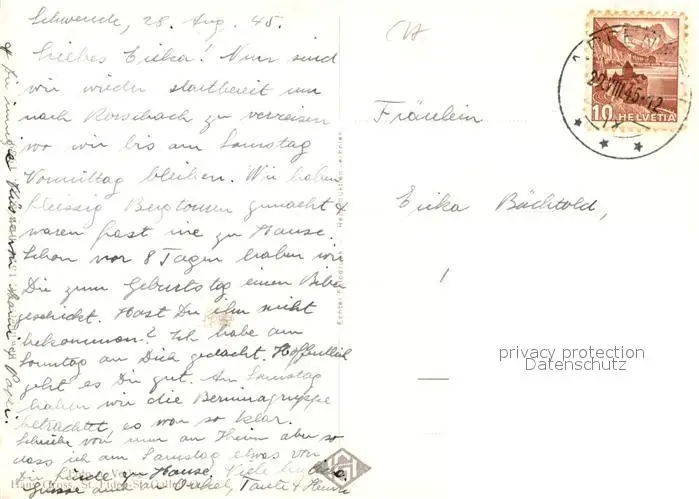 Schwende, 28. Aug. 45.
Liebes Erika! Nun sind
wir wieder startbereit um
nach Rorschach zu verreisen
wo wir bis am Samstag
Vormittag bleiben. Wir haben
fleissig Bergtouren gemacht &
waren fast nie zu Hause.
Schon vor 8 Tagen haben wir
Dir zum Geburtstag einen Biber
geschickt. Hast Du ihn nicht
bekommen? Ich habe am
Sonntag an Dich gedacht. Hoffentlich
geht es Dir gut. Am Samstag
haben wir die Berninagruppe
betrachtet, es war so klar.
Schreibe von nun an Heim aber so
dass ich am Samstag etwas von
Dir finde zu Hause. Viele
Grüsse auch an Onkel, Tante &
Papi.
Fräulein
Erika Bächtold,
HELVETIA
10
29.VIII.45-12
privacy protection
Datenschutz